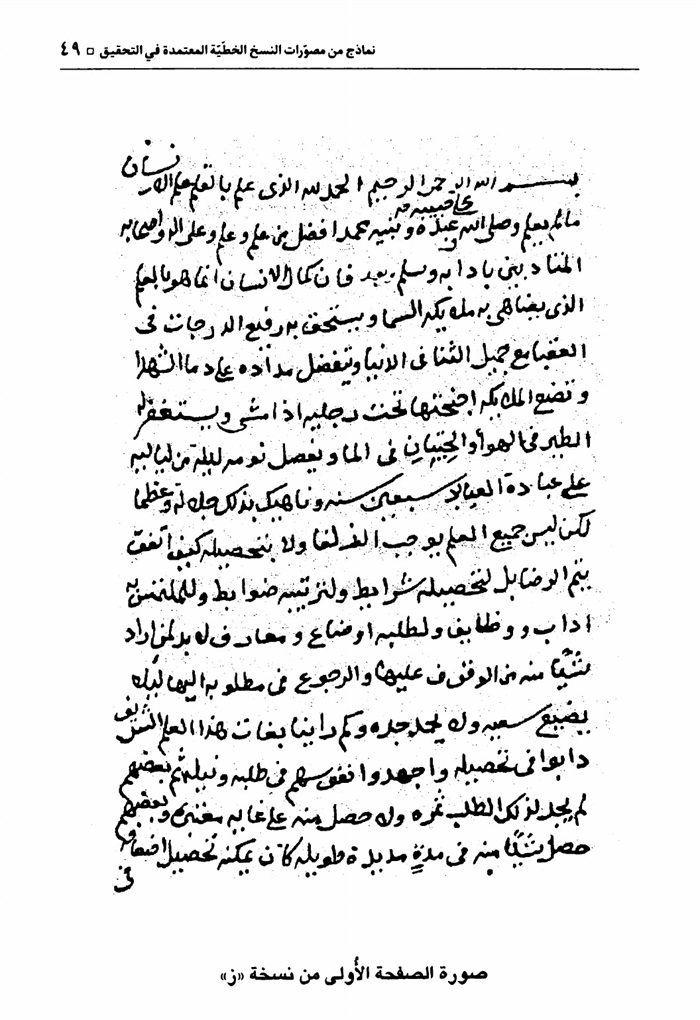 نماذج من مصوّرات النسخ الخطّيّة المعتمدة في التحقيق □ ٤٩
بسم الله الرحمن الرحيم الحمد لله الذى علم بالقلم علم الانسان
على حبيبه و
مالم يعلم وصلى الله عبده ونبيه محمد افضل من علم وعلم وعلى اله واصحابه
المتادبين بادابه وسلم وبعد فان كمال الانسان انما هو بالعلم
الذى يضاهى به ملايكه السما ويستحق به رفيع الدرجات فى
العقبا مع جميل الثنا فى الدنيا ويتفضل مداده على دما الشهدا
وتضع الملايكه اجنحتها تحت رجليه اذا مشى ويستغفر له
الطير فى الهوا والحيتان فى الما ويفضل نومه ليلة من لياليه
على عبادة العابد سبعين سنه وناهيك بذلك جلالة وعظما
لكن ليس جميع العلم يوجب الزلفا ولا بتحصيله كيف اتفق
يتم الرضا بل لتحصيله شرايط ولترتيبه ضوابط وللملتبس به
اداب ووظايف ولطلبه اوضاع ومعارف لا بد لمن اراد
شيًا منه من الوقوف عليها والرجوع فى مطلوبه اليها ليلا
يضيع سعيه ولا يخمد جده وكم راينا بغات هذا العلم الشريف
دابوا فى تحصيله واجهدوا انفوسهم فى طلبه ونيله ثم بعضهم
لم يجد لذلك الطلب ثمره ولا حصل منه على غايه معتبره وبعضهم
حصل شيًا منه فى مدةٍ مديدة طويله كان يمكنه تحصيل اضعافه
فى
صورة الصفحة الأُولى من نسخة «ز»